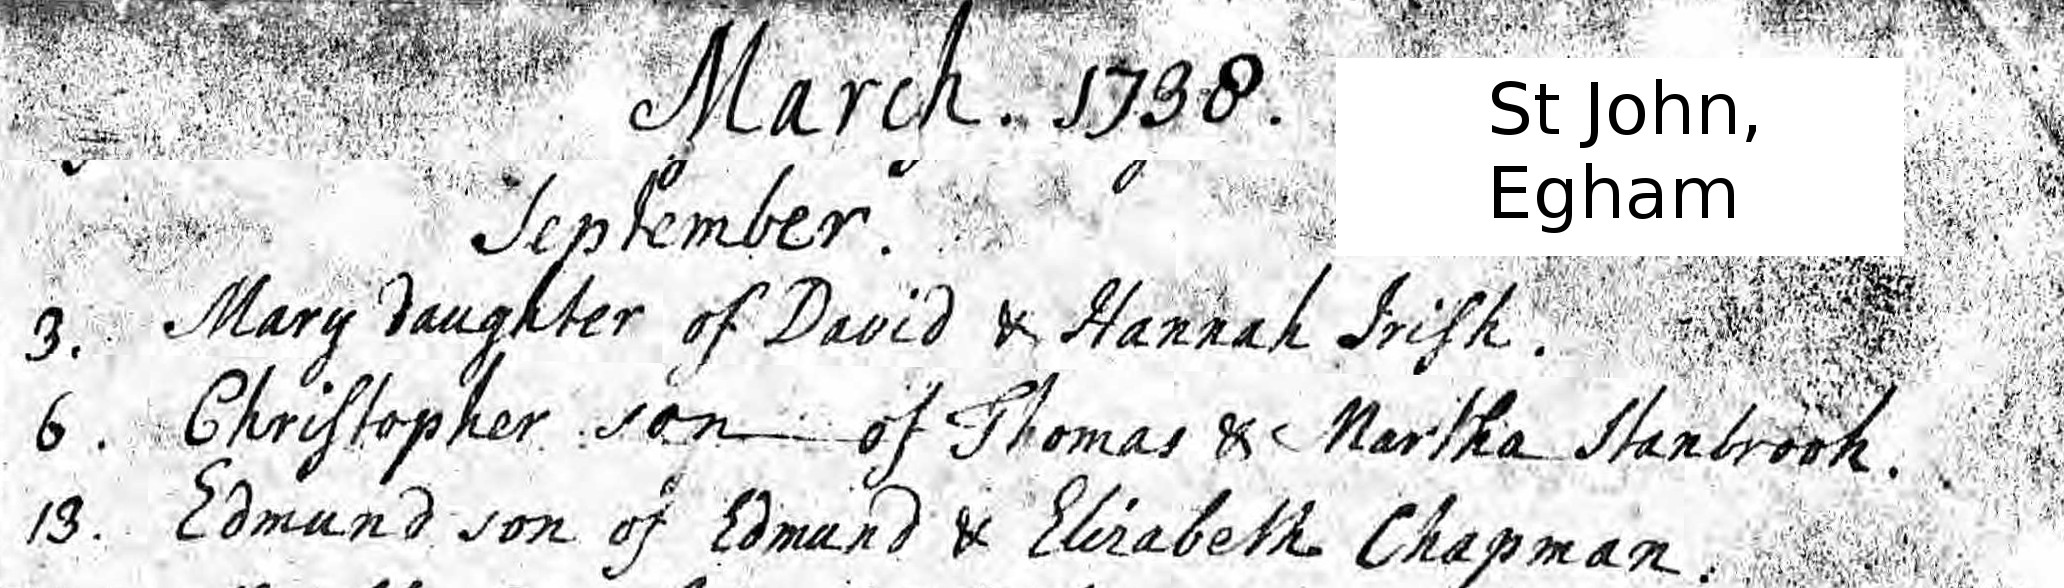 March. 1738.
St John,
Egham
September.
3. Mary daughter of David & Hannah Irish.
6. Christopher son of Thomas & Martha Stanbrook.
13. Edmund son of Edmund & Elizabeth Chapman.